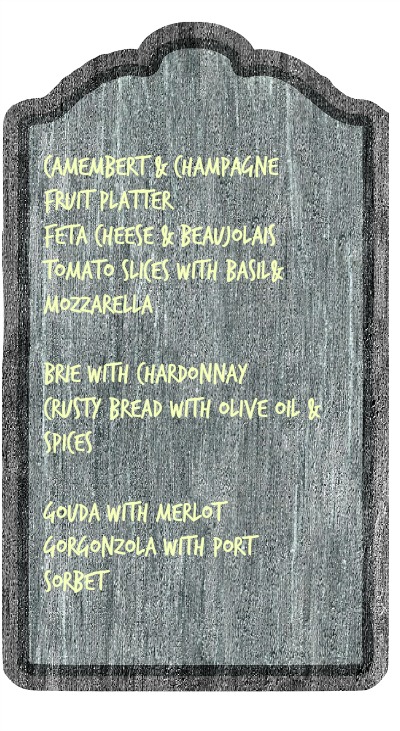 CAMEMBERT & CHAMPAGNE
FRUIT PLATTER
FETA CHEESE & BEAUJOLAIS
TOMATO SLICES WITH BASIL&
MOZZARELLA
BRIE WITH CHARDONNAY
CRUSTY BREAD WITH OLIVE OIL &
SPICES
GOUDA WITH MERLOT
GORGONZOLA WITH PORT
SORBET